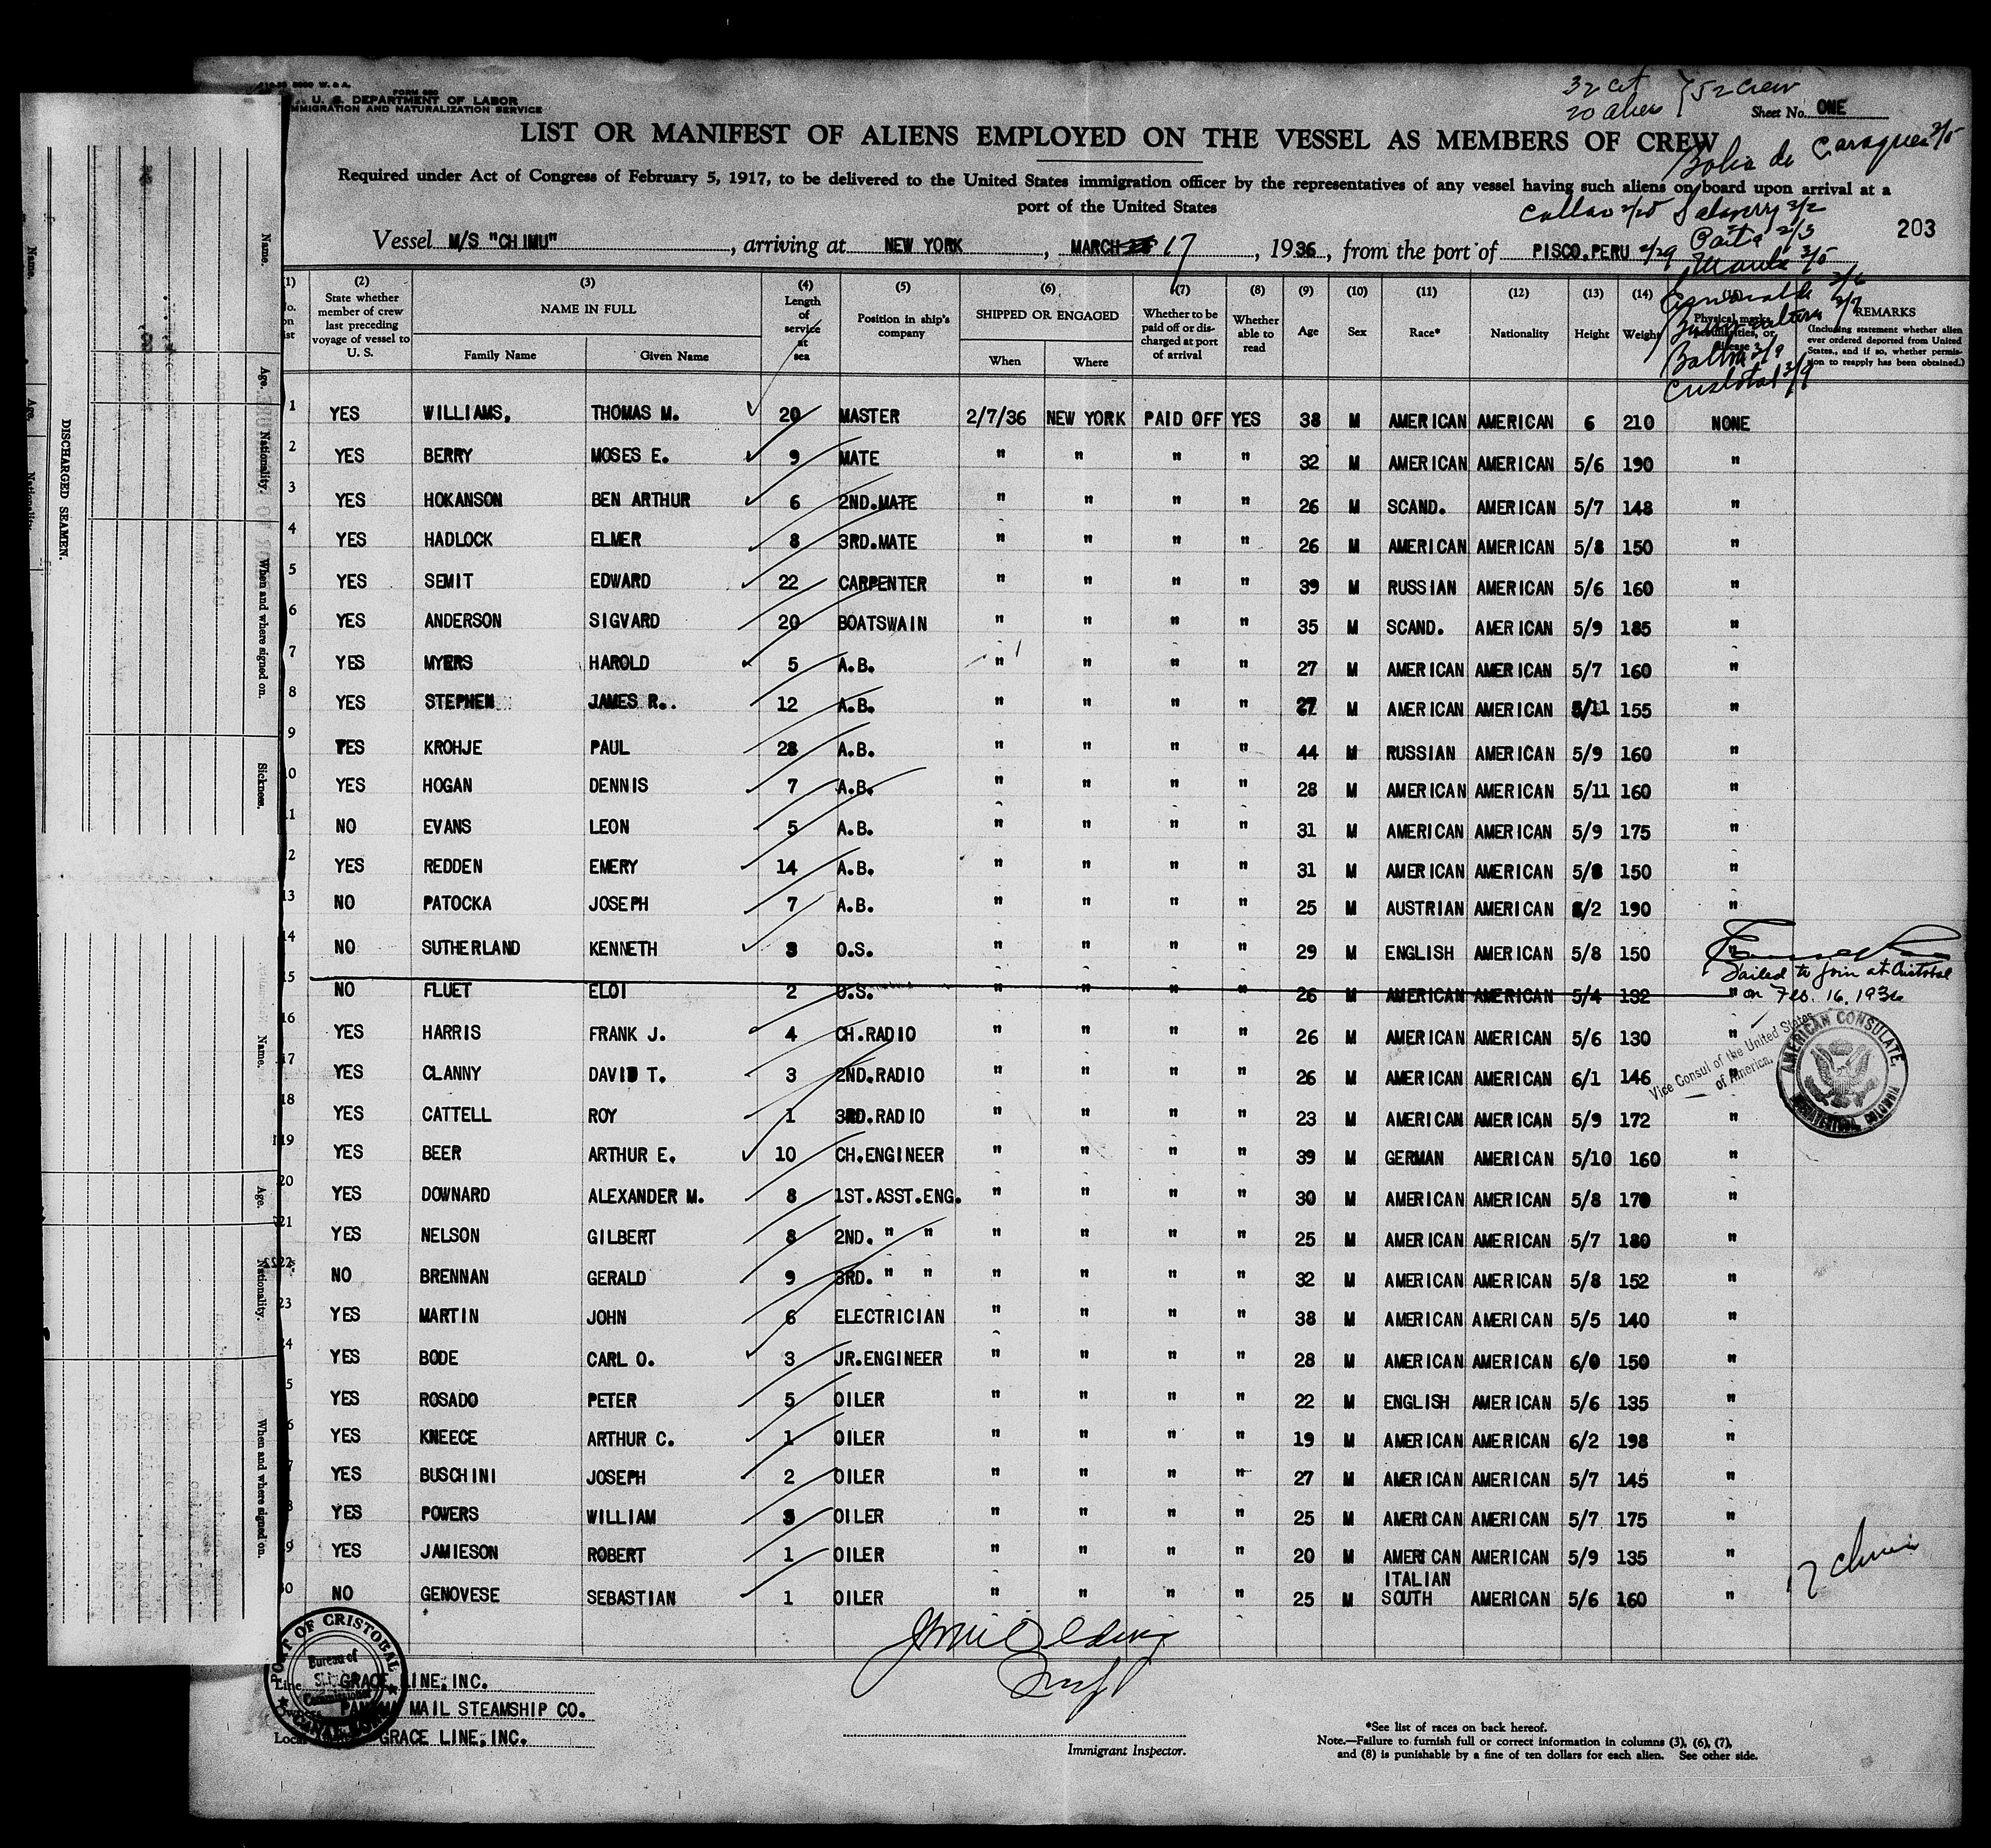 FORM 680
U. S. DEPARTMENT OF LABOR
IMMIGRATION AND NATURALIZATION SERVICE
32 cit
20 alien } 52 crew
Sheet No. ONE
LIST OR MANIFEST OF ALIENS EMPLOYED ON THE VESSEL AS MEMBERS OF CREW
Required under Act of Congress of February 5, 1917, to be delivered to the United States immigration officer by the representatives of any vessel having such aliens on board upon arrival at a
port of the United States
203
Callao Salaverry 3/2
Vessel M/S "CHIMU", arriving at NEW YORK, MARCH 17, 1936, from the port of PISCO.PERU 2/29
(1) (2) (3) (4) (5) (6) (7) (8) (9) (10) (11) (12) (13) (14)
State whether member of crew last preceding voyage of vessel to U. S.
NAME IN FULL
Family Name Given Name
Length of service at sea
Position in ship's company
SHIPPED OR ENGAGED
When Where
Whether to be paid off or discharged at port of arrival
Whether able to read
Age Sex Race* Nationality Height Weight
REMARKS
(Including statement whether alien ever ordered deported from United States, and if so, whether permission to reapply has been obtained.)
1 YES WILLIAMS, THOMAS M. 20 MASTER 2/7/36 NEW YORK PAID OFF YES 38 M AMERICAN AMERICAN 6 210 NONE
2 YES BERRY MOSES E. 9 MATE " " " " 32 M AMERICAN AMERICAN 5/6 190 "
3 YES HOKANSON BEN ARTHUR 6 2ND.MATE " " " " 26 M SCAND. AMERICAN 5/7 148 "
4 YES HADLOCK ELMER 8 3RD.MATE " " " " 26 M AMERICAN AMERICAN 5/8 150 "
5 YES SEMIT EDWARD 22 CARPENTER " " " " 39 M RUSSIAN AMERICAN 5/6 160 "
6 YES ANDERSON SIGVARD 20 BOATSWAIN " " " " 35 M SCAND. AMERICAN 5/9 185 "
7 YES MYERS HAROLD 5 A.B. " " " " 27 M AMERICAN AMERICAN 5/7 160 "
8 YES STEPHEN JAMES R. 12 A.B. " " " " 27 M AMERICAN AMERICAN 5/11 155 "
9 YES KROHJE PAUL 28 A.B. " " " " 44 M RUSSIAN AMERICAN 5/9 160 "
10 YES HOGAN DENNIS 7 A.B. " " " " 28 M AMERICAN AMERICAN 5/11 160 "
11 NO EVANS LEON 5 A.B. " " " " 31 M AMERICAN AMERICAN 5/9 175 "
12 YES REDDEN EMERY 14 A.B. " " " " 31 M AMERICAN AMERICAN 5/8 150 "
13 NO PATOCKA JOSEPH 7 A.B. " " " " 25 M AUSTRIAN AMERICAN 6/2 190 "
14 NO SUTHERLAND KENNETH 3 O.S. " " " " 29 M ENGLISH AMERICAN 5/8 150 "
15 NO FLUET ELOI 2 O.S. " " " " 26 M AMERICAN AMERICAN 5/4 132 "
Failed to join at Cristobal
on Feb. 16, 1936
16 YES HARRIS FRANK J. 4 CH.RADIO " " " " 26 M AMERICAN AMERICAN 5/6 130 "
Vice Consul of the United States
of America.
AMERICAN CONSULATE,
17 YES CLANNY DAVID T. 3 2ND.RADIO " " " " 26 M AMERICAN AMERICAN 6/1 146 "
18 YES CATTELL ROY 1 3RD.RADIO " " " " 23 M AMERICAN AMERICAN 5/9 172 "
19 YES BEER ARTHUR E. 10 CH.ENGINEER " " " " 39 M GERMAN AMERICAN 5/10 160 "
20 YES DOWNARD ALEXANDER M. 8 1ST.ASST.ENG. " " " " 30 M AMERICAN AMERICAN 5/8 170 "
21 YES NELSON GILBERT 8 2ND. " " " " " " 25 M AMERICAN AMERICAN 5/7 180 "
22 NO BRENNAN GERALD 9 3RD. " " " " " " 32 M AMERICAN AMERICAN 5/8 152 "
23 YES MARTIN JOHN 6 ELECTRICIAN " " " " 38 M AMERICAN AMERICAN 5/5 140 "
24 YES BODE CARL O. 3 JR.ENGINEER " " " " 28 M AMERICAN AMERICAN 6/0 150 "
5 YES ROSADO PETER 5 OILER " " " " 22 M ENGLISH AMERICAN 5/6 135 "
6 YES KNEECE ARTHUR C. 1 OILER " " " " 19 M AMERICAN AMERICAN 6/2 198 "
7 YES BUSCHINI JOSEPH 2 OILER " " " " 27 M AMERICAN AMERICAN 5/7 145 "
8 YES POWERS WILLIAM 3 OILER " " " " 25 M AMERICAN AMERICAN 5/7 175 "
9 YES JAMIESON ROBERT 1 OILER " " " " 20 M AMERICAN AMERICAN 5/9 135 "
30 NO GENOVESE SEBASTIAN 1 OILER " " " " 25 M ITALIAN SOUTH AMERICAN 5/6 160 "
PORT OF CRISTOBAL
Bureau of
Line GRACE LINE, INC.
Owners PANAMA MAIL STEAMSHIP CO.
Local GRACE LINE, INC.
Immigrant Inspector.
*See list of races on back hereof.
Note.—Failure to furnish full or correct information in columns (3), (6), (7),
and (8) is punishable by a fine of ten dollars for each alien. See other side.
DISCHARGED SEAMEN.
Name. Age. Nationality. When and where signed on. Sickness.
Name. Age. Nationality. When and where signed on.